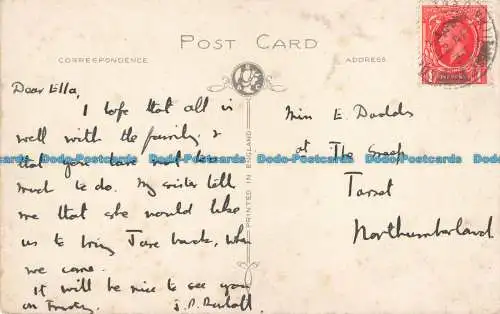 POST CARD
CORRESPONDENCE
ADDRESS
PRINTED IN ENGLAND
Dear Ella,
I hope that all is
well with the family &
that you have not too
much to do. My sister tells
me that she would like
us to bring Jane back, when
we come.
It will be nice to see you
on Tuesday. J.P.
Miss E. Dodds
at The
Tarset
Northumberland
Dodo-Postcards Dodo-Postcards Dodo-Postcards Dodo-Postcards